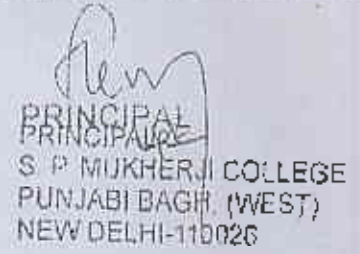 PRINCIPAL
PRINCIPAL
S P MUKHERJI COLLEGE
PUNJABI BAGH, (WEST)
NEW DELHI-110026